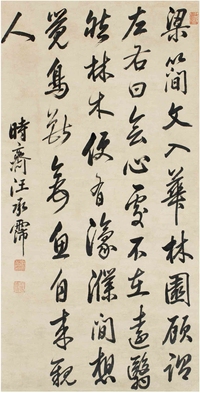 梁簡文入華林園顧謂
左右曰會心處不在遠翳
然林木便有濠濮間想
覺鳥獸禽魚自來親
人
時齋汪承霈